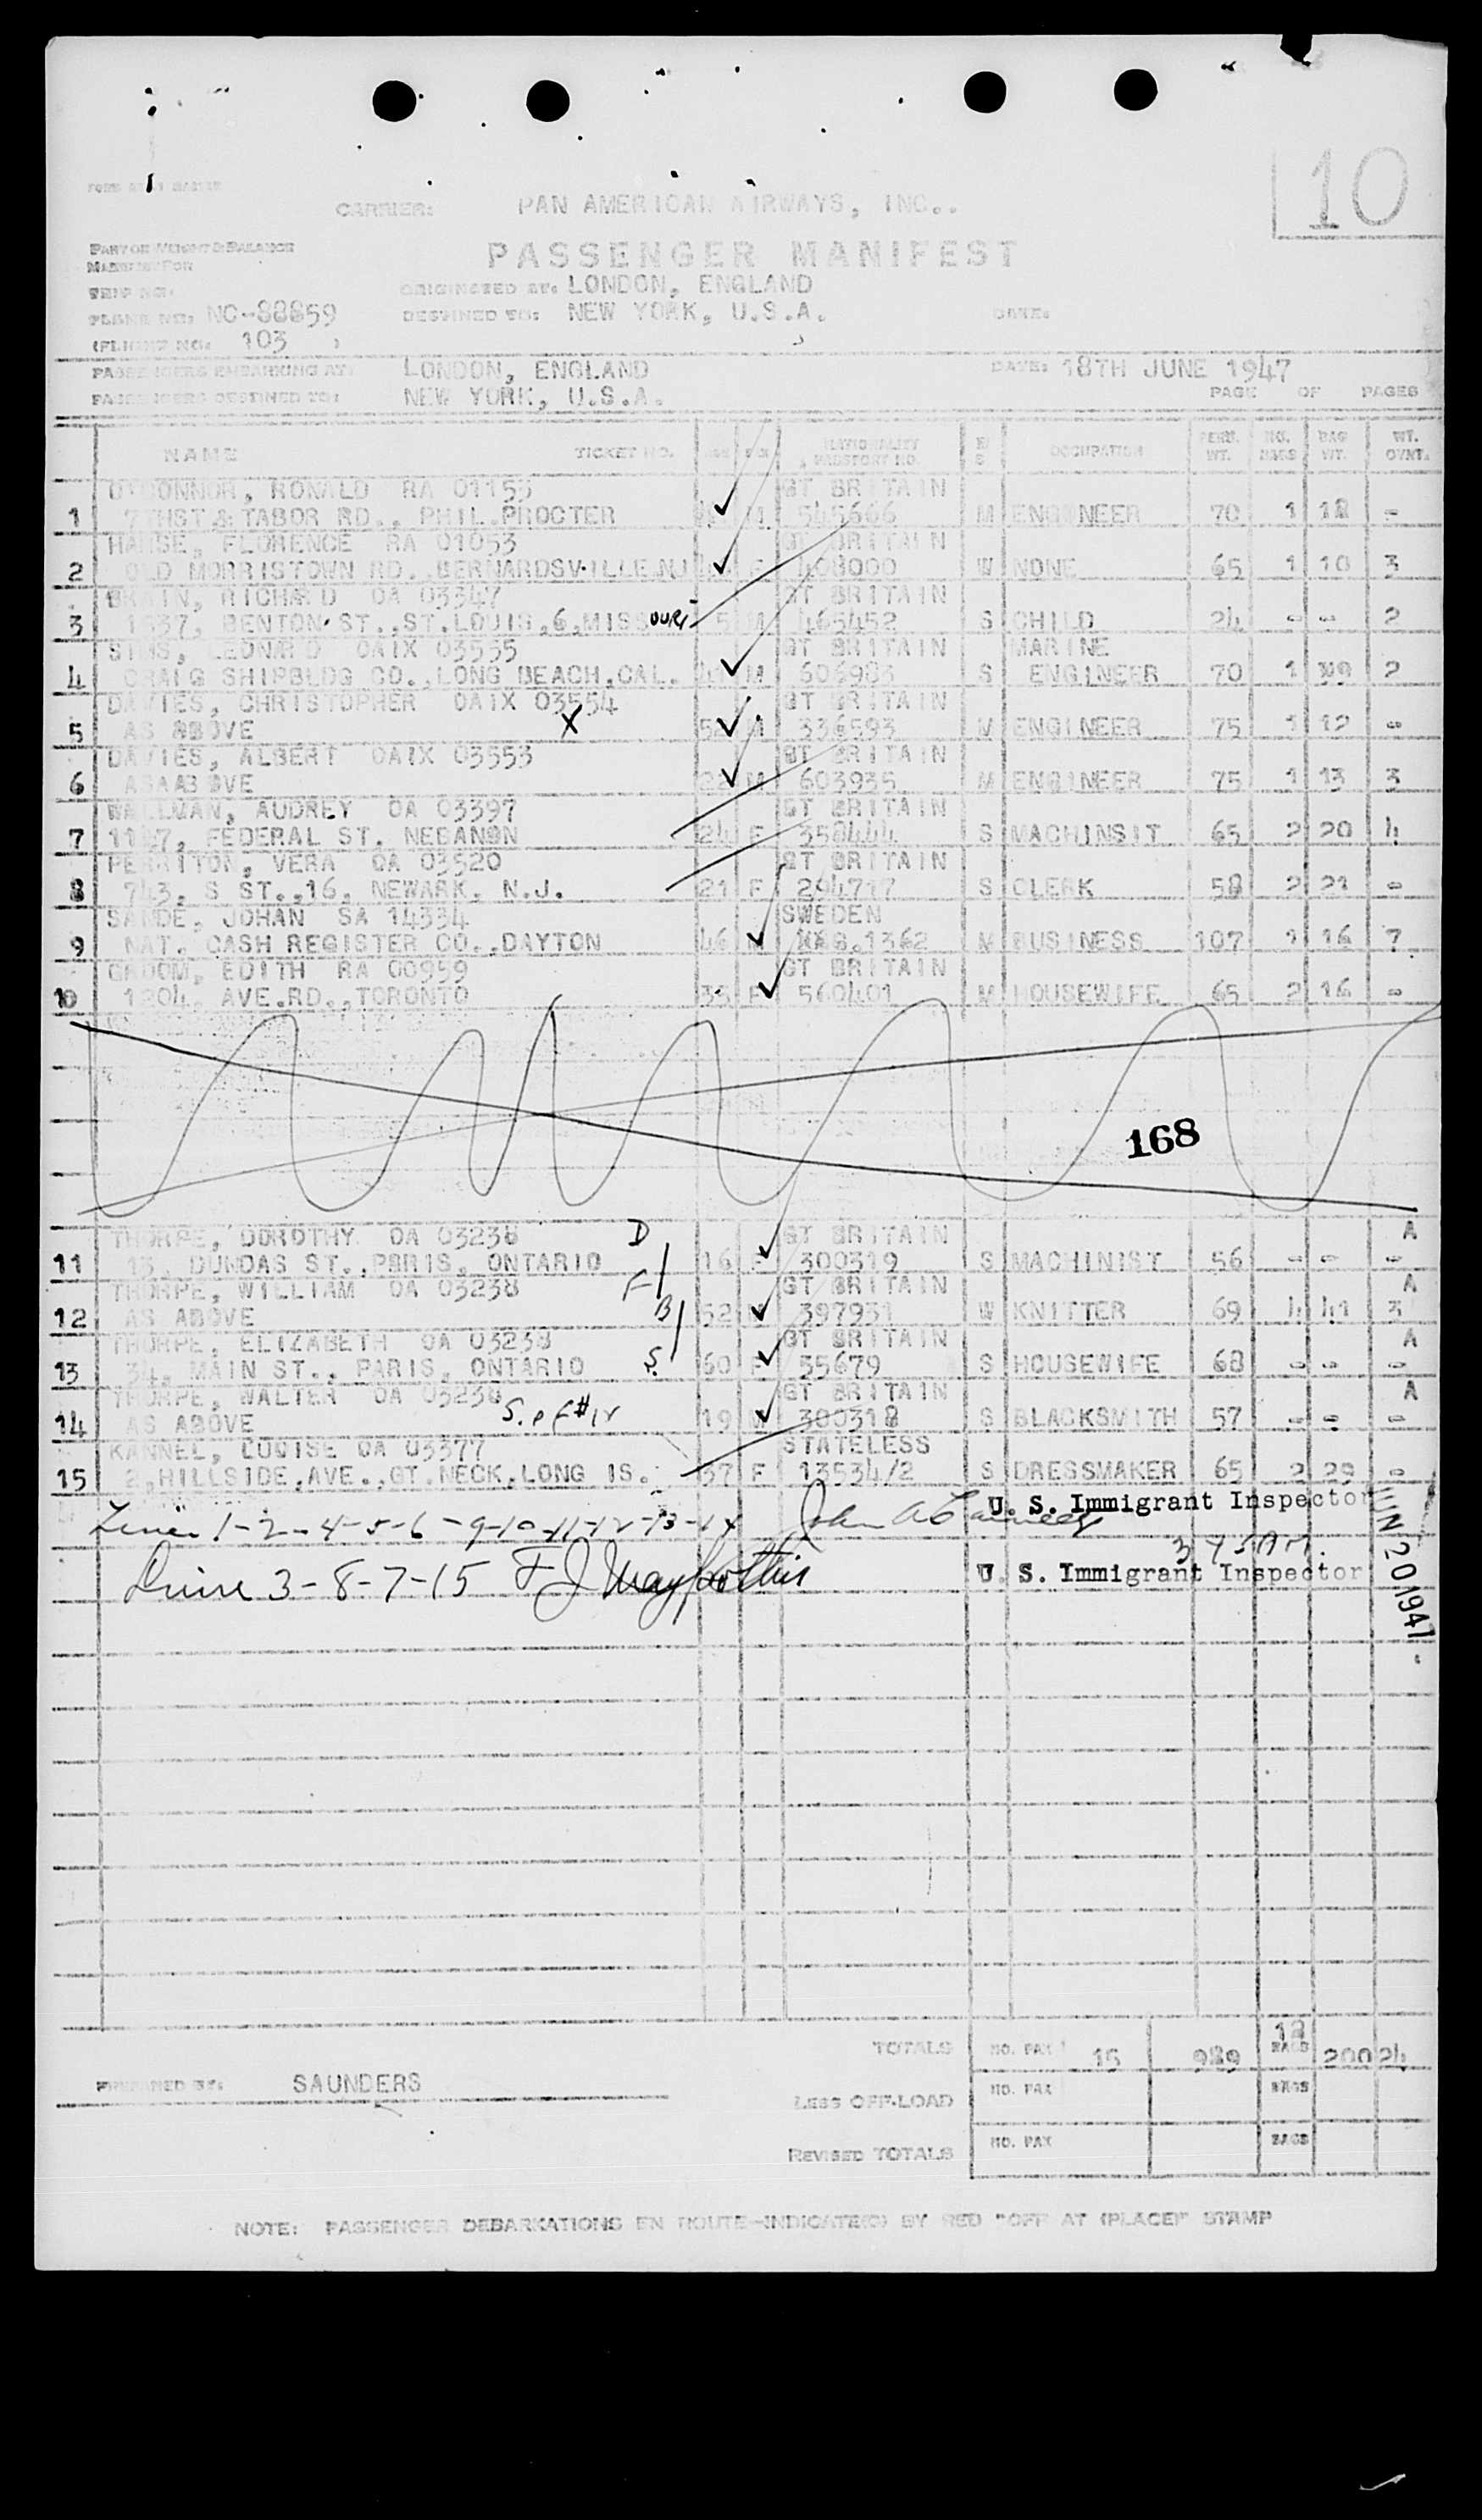 10
CARRIER: PAN AMERICAN AIRWAYS, INC..
PART OF WEIGHT & BALANCE
MANIFEST FOR
PASSENGER MANIFEST
TRIP NO:
ORIGINATED AT: LONDON, ENGLAND
PLANE NO: NC-88859
DESTINED TO: NEW YORK, U.S.A.
DATE:
(FLIGHT NO: 103 )
PASSENGERS EMBARKING AT: LONDON, ENGLAND
DATE: 18TH JUNE 1947
PASSENGERS DESTINED TO: NEW YORK, U.S.A.
PAGE OF PAGES
NAME TICKET NO. AGE SEX NATIONALITY & PASSPORT NO. M S OCCUPATION PERS. WT. NO. BAGS BAG WT. WT. OVNT.
O'CONNOR, RONALD RA 01155 GT BRITAIN
1 & TABOR RD., PHIL.PROCTER M 545666 M ENGINEER 70 1 18 -
FLORENCE RA 01053 GT BRITAIN
2 OLD MORRISTOWN RD. BERNARDSVILLE NJ F 408000 W NONE 65 1 10 3
RICHARD OA 03347 GT BRITAIN
3 BENTON ST., ST.LOUIS,6,MISSOURI 5 M 465452 S CHILD 24 - - 2
SIMS, LEONARD OAIX 03555 GT BRITAIN MARINE
4 CRAIG SHIPBLDG CO., LONG BEACH,CAL. M 603983 S ENGINEER 70 1 2
DAVIES, CHRISTOPHER OAIX 03554 GT BRITAIN
5 AS ABOVE X M 336593 M ENGINEER 75 1 12 -
DAVIES, ALBERT OAIX 03553 GT BRITAIN
6 ASAABOVE M 603935 M ENGINEER 75 1 13 3
WALLMAN, AUDREY OA 03397 GT BRITAIN
7 FEDERAL ST. NEBANON 24 F 358444 S MACHINSIT 65 2 20 4
PERRITON, VERA OA 03520 GT BRITAIN
8 743, S ST.,16, NEWARK, N.J. 21 F 294717 S CLERK 58 2 21 -
SANDE, JOHAN SA 14334 SWEDEN
9 NAT. CASH REGISTER CO.,DAYTON 46 M 1362 M BUSINESS 107 1 16 7
GROOM, EDITH RA 00959 GT BRITAIN
10 1204, AVE.RD.,TORONTO 35 F 560401 M HOUSEWIFE 65 2 16 -
168
THORPE, DOROTHY OA 03238 D GT BRITAIN A
11 13, DUNDAS ST.,PARIS, ONTARIO 16 F 300319 S MACHINIST 56 - - -
THORPE, WILLIAM OA 03238 F GT BRITAIN A
12 AS ABOVE B 52 M 397931 W KNITTER 69 4 41 3
THORPE, ELIZABETH OA 03238 GT BRITAIN A
13 34, MAIN ST., PARIS, ONTARIO S. 60 F 55679 S HOUSEWIFE 68 - - -
THORPE, WALTER OA 03238 GT BRITAIN A
14 AS ABOVE S. of #12 19 M 300318 S BLACKSMITH 57 - - -
KANNEL, LOUISE OA 03377 STATELESS
15 2,HILLSIDE.AVE.,GT.NECK.LONG IS. 37 F 13534/2 S DRESSMAKER 65 2 29 -
U. S. Immigrant Inspector
Lines 1-2-4-5-6-9-10-11-12-13-14 John A
3 45 AM.
JUN 20 1947
Line 3-8-7-15 F J
U. S. Immigrant Inspector
TOTALS NO. PAX 15 989 18 BAGS 200 24
PREPARED BY: SAUNDERS
LESS OFF-LOAD NO. PAX BAGS
REVISED TOTALS NO. PAX BAGS
NOTE: PASSENGER DEBARKATIONS EN ROUTE-INDICATE(D) BY RED "OFF AT (PLACE)" STAMP